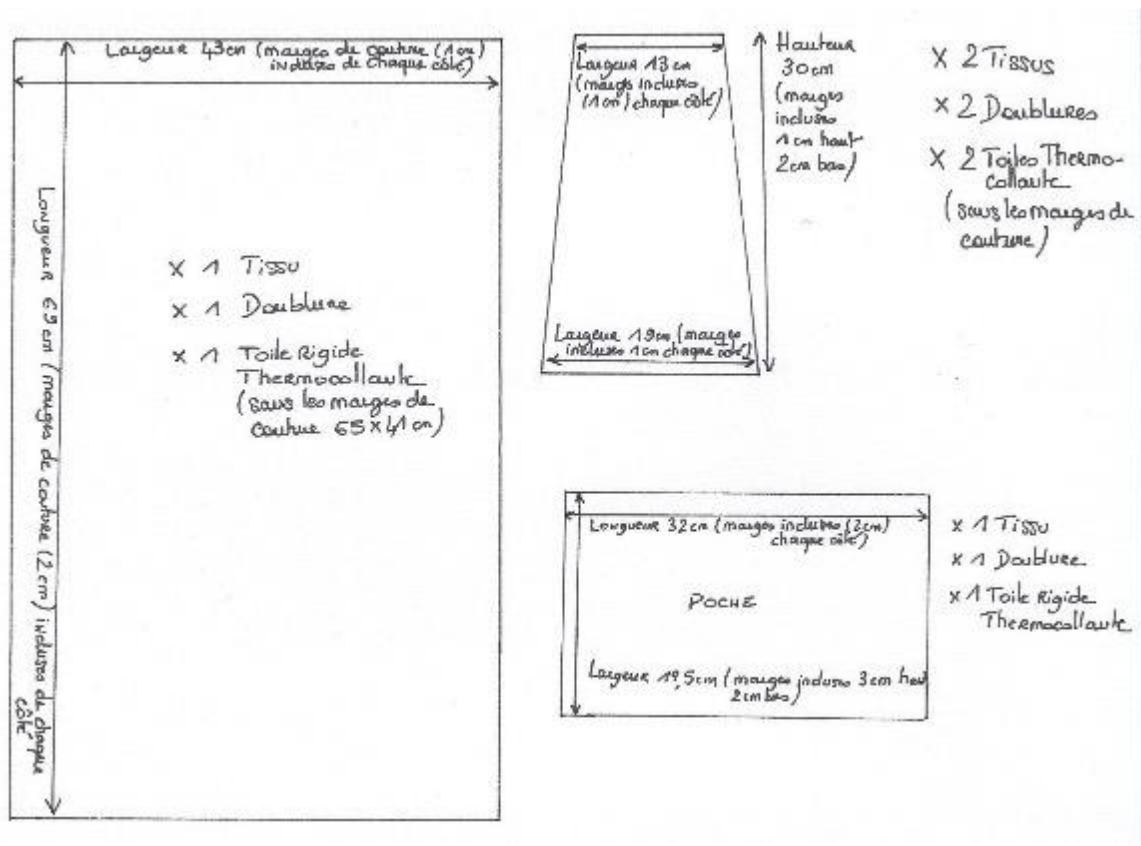 Largeur 43cm (marges de couture (1cm)
incluses de chaque côté)
Longueur 69 cm (marges de couture (2 cm) incluses de chaque
côté
x 1 Tissu
x 1 Doublure
x 1 Toile Rigide
Thermocollante
(sans les marges de
couture 65 x 41 cm)
Largeur 13 cm
(marges incluses
(1cm) chaque côté)
Hauteur
30cm
(marges
incluses
1 cm haut
2cm bas)
Largeur 19cm (marges
incluses 1cm chaque côté)
x 2 Tissus
x 2 Doublures
x 2 Toiles Thermo-
collante
(sans les marges de
couture)
Longueur 32cm (marges incluses (2cm)
chaque côté)
POCHE
Largeur 19,5cm (marges incluses 3cm haut
2cm bas)
x 1 Tissu
x 1 Doublure
x 1 Toile Rigide
Thermocollante